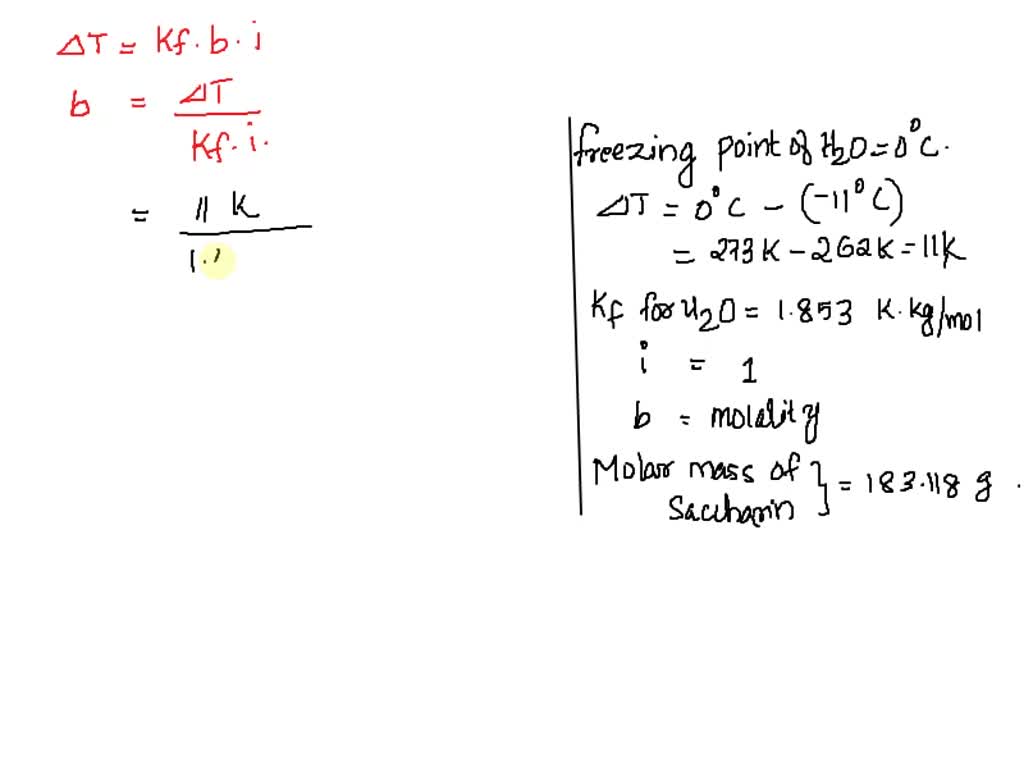 ΔT = Kf · b · i
b = ΔT / Kf · i.
= 11 K / 1.
freezing point of H2O = 0°C.
ΔT = 0°C - (-11°C)
= 273K - 262K = 11K
Kf for H2O = 1.853 K.kg/mol
i = 1
b = molality
Molar mass of Saccharin } = 183.118 g .